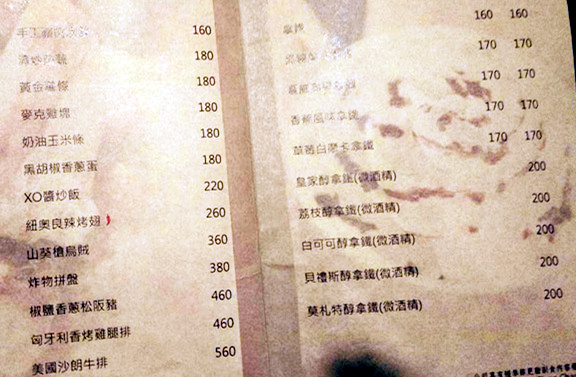 160
180
黃金薯條 180
麥克雞塊 180
奶油玉米條 180
黑胡椒香蔥蛋 180
XO醬炒飯 220
紐奧良辣烤翅 260
山葵嗆烏賊 360
炸物拼盤 380
椒鹽香蔥松阪豬 460
匈牙利香烤雞腿排 460
美國沙朗牛排 560
拿鐵 160 160
170 170
170 170
香榭風味拿鐵 170 170
草莓白摩卡拿鐵 170 170
皇家醇拿鐵(微酒精) 200
荔枝醇拿鐵(微酒精) 200
白可可醇拿鐵(微酒精) 200
貝禮斯醇拿鐵(微酒精) 200
莫札特醇拿鐵(微酒精) 200